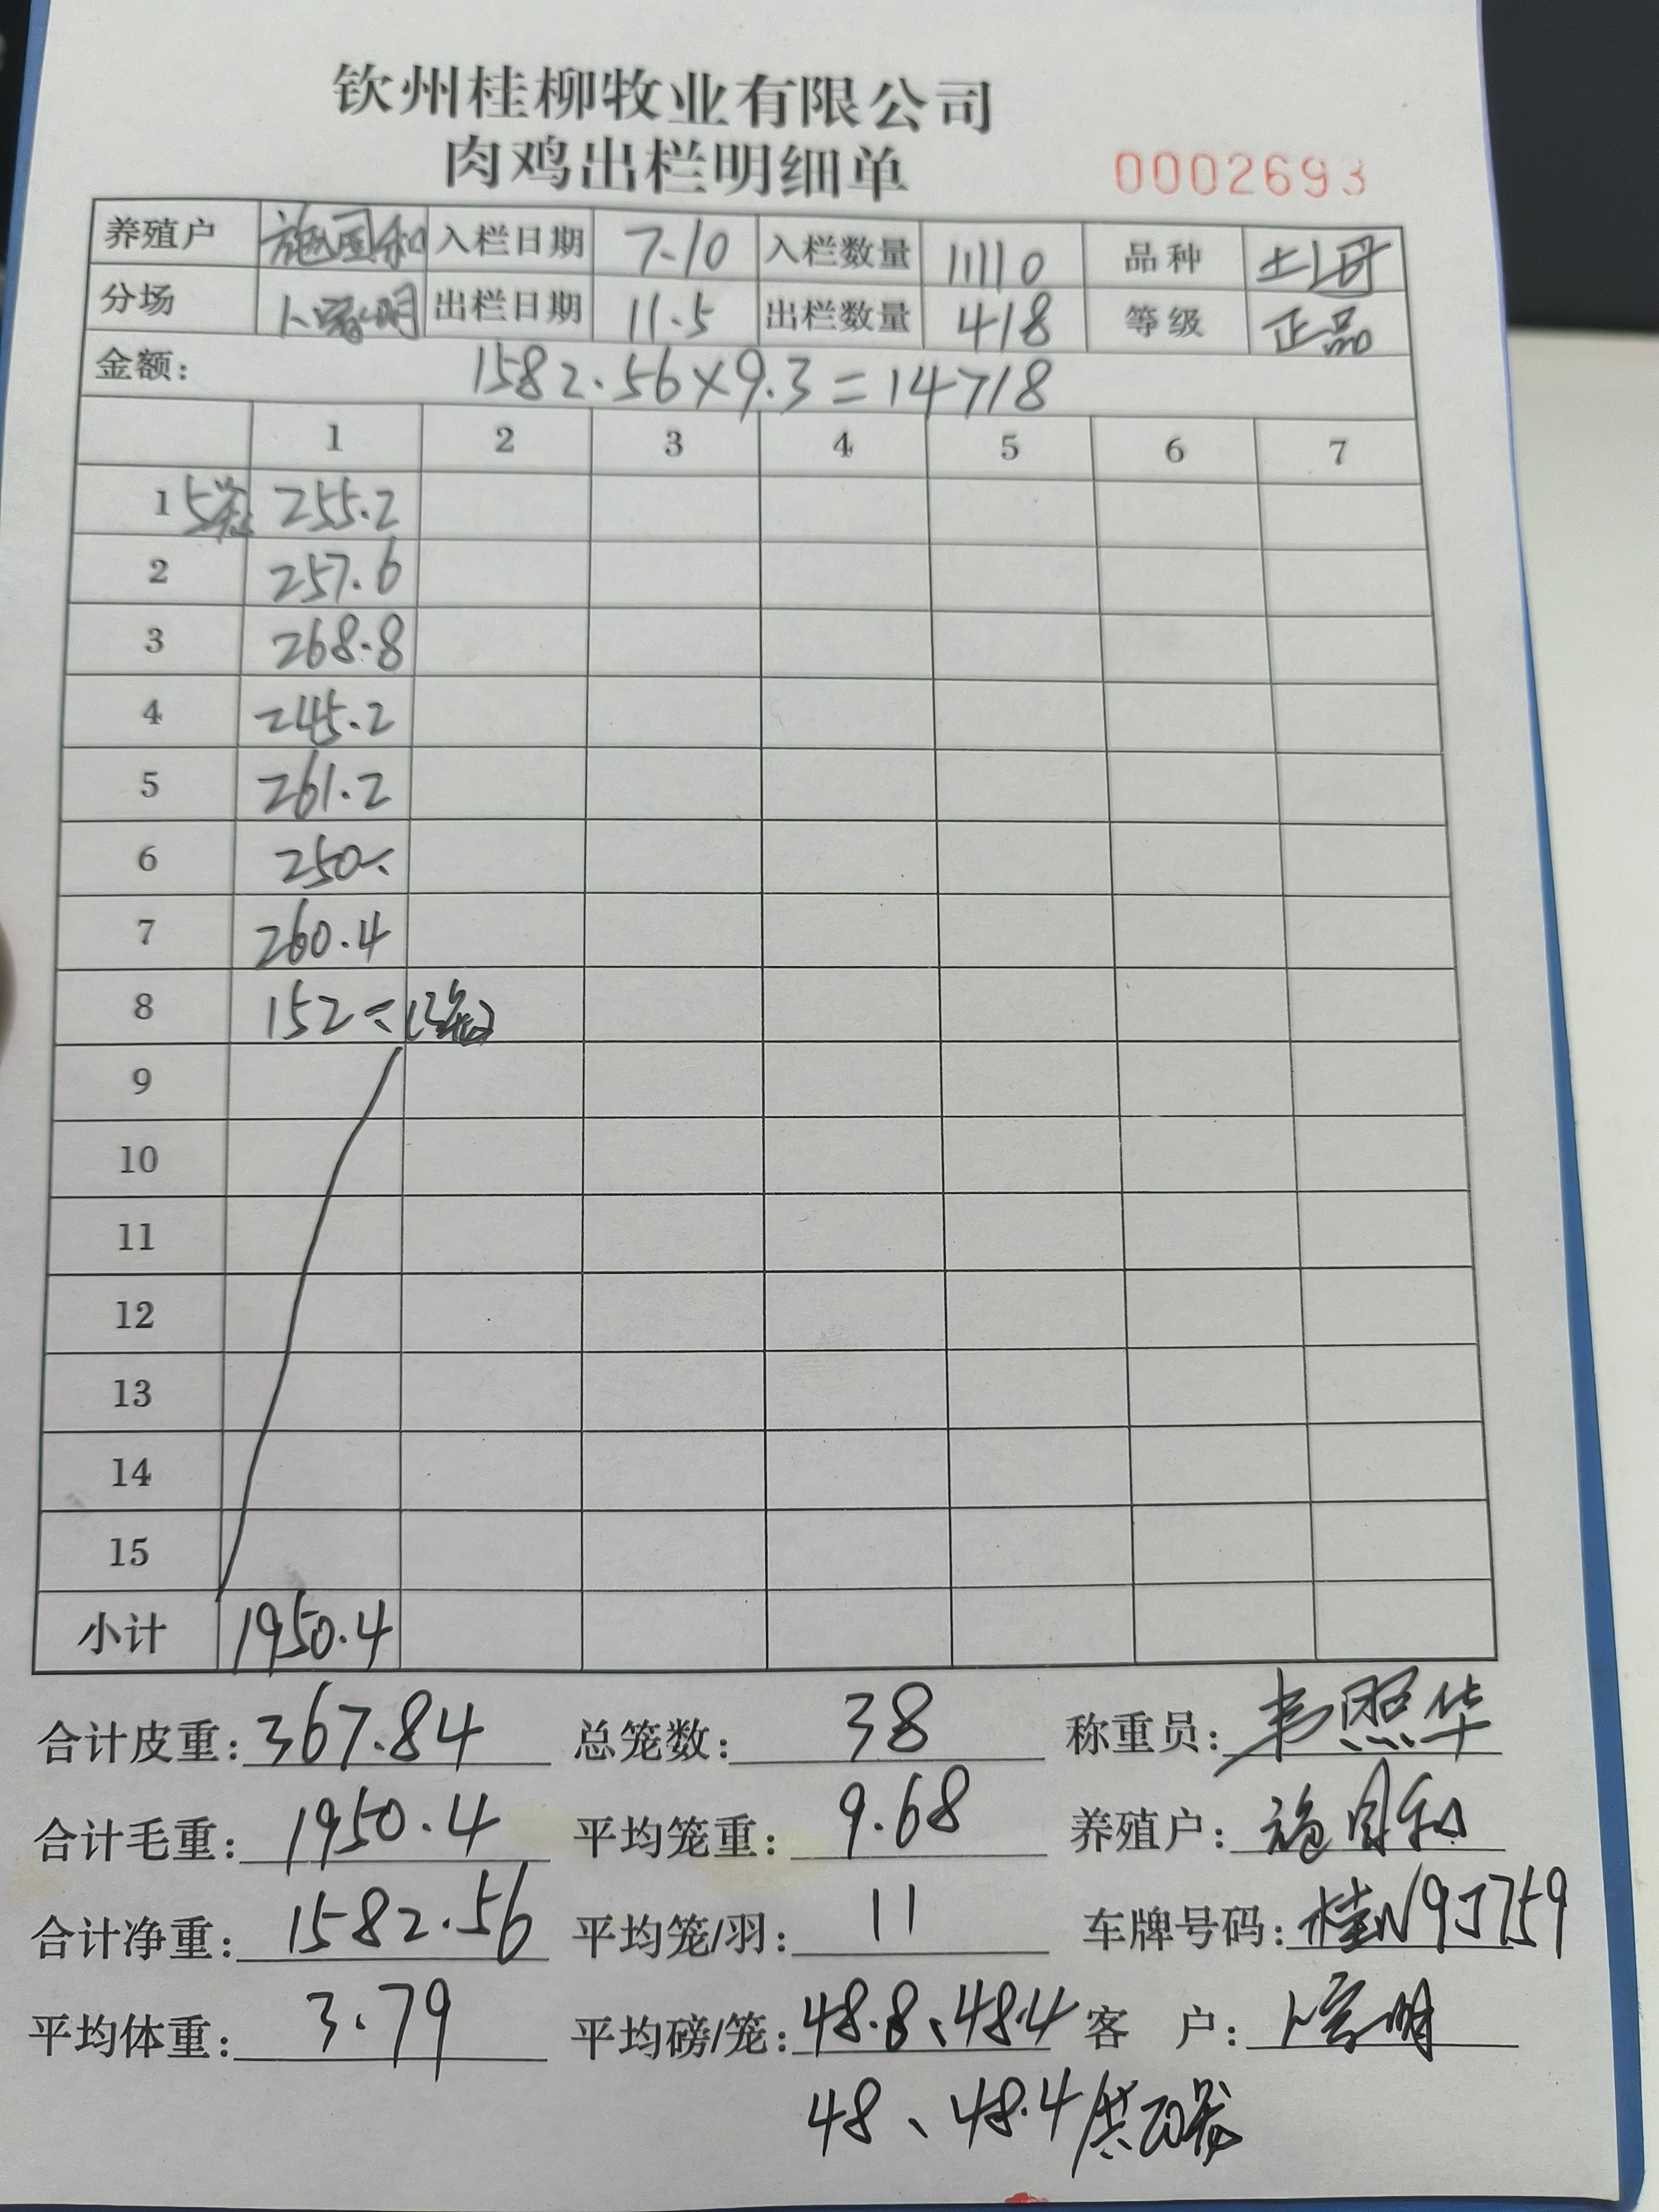 钦州桂柳牧业有限公司
肉鸡出栏明细单 0002693
养殖户 施国和 入栏日期 7.10 入栏数量 11110 品种 土2母
分场 卜家明 出栏日期 11.5 出栏数量 418 等级 正品
金额: 1582.56×9.3=14718
1 2 3 4 5 6 7
1 5笼 255.2
2 257.6
3 268.8
4 245.2
5 261.2
6 250
7 260.4
8 152 (3笼)
9
10
11
12
13
14
15
小计 1950.4
合计皮重: 367.84 总笼数: 38 称重员: 韦照华
合计毛重: 1950.4 平均笼重: 9.68 养殖户: 施国和
合计净重: 1582.56 平均笼/羽: 11 车牌号码: 桂N9J759
平均体重: 3.79 平均磅/笼: 48.8、48.4 客户: 卜家明
48、48.4/共20笼